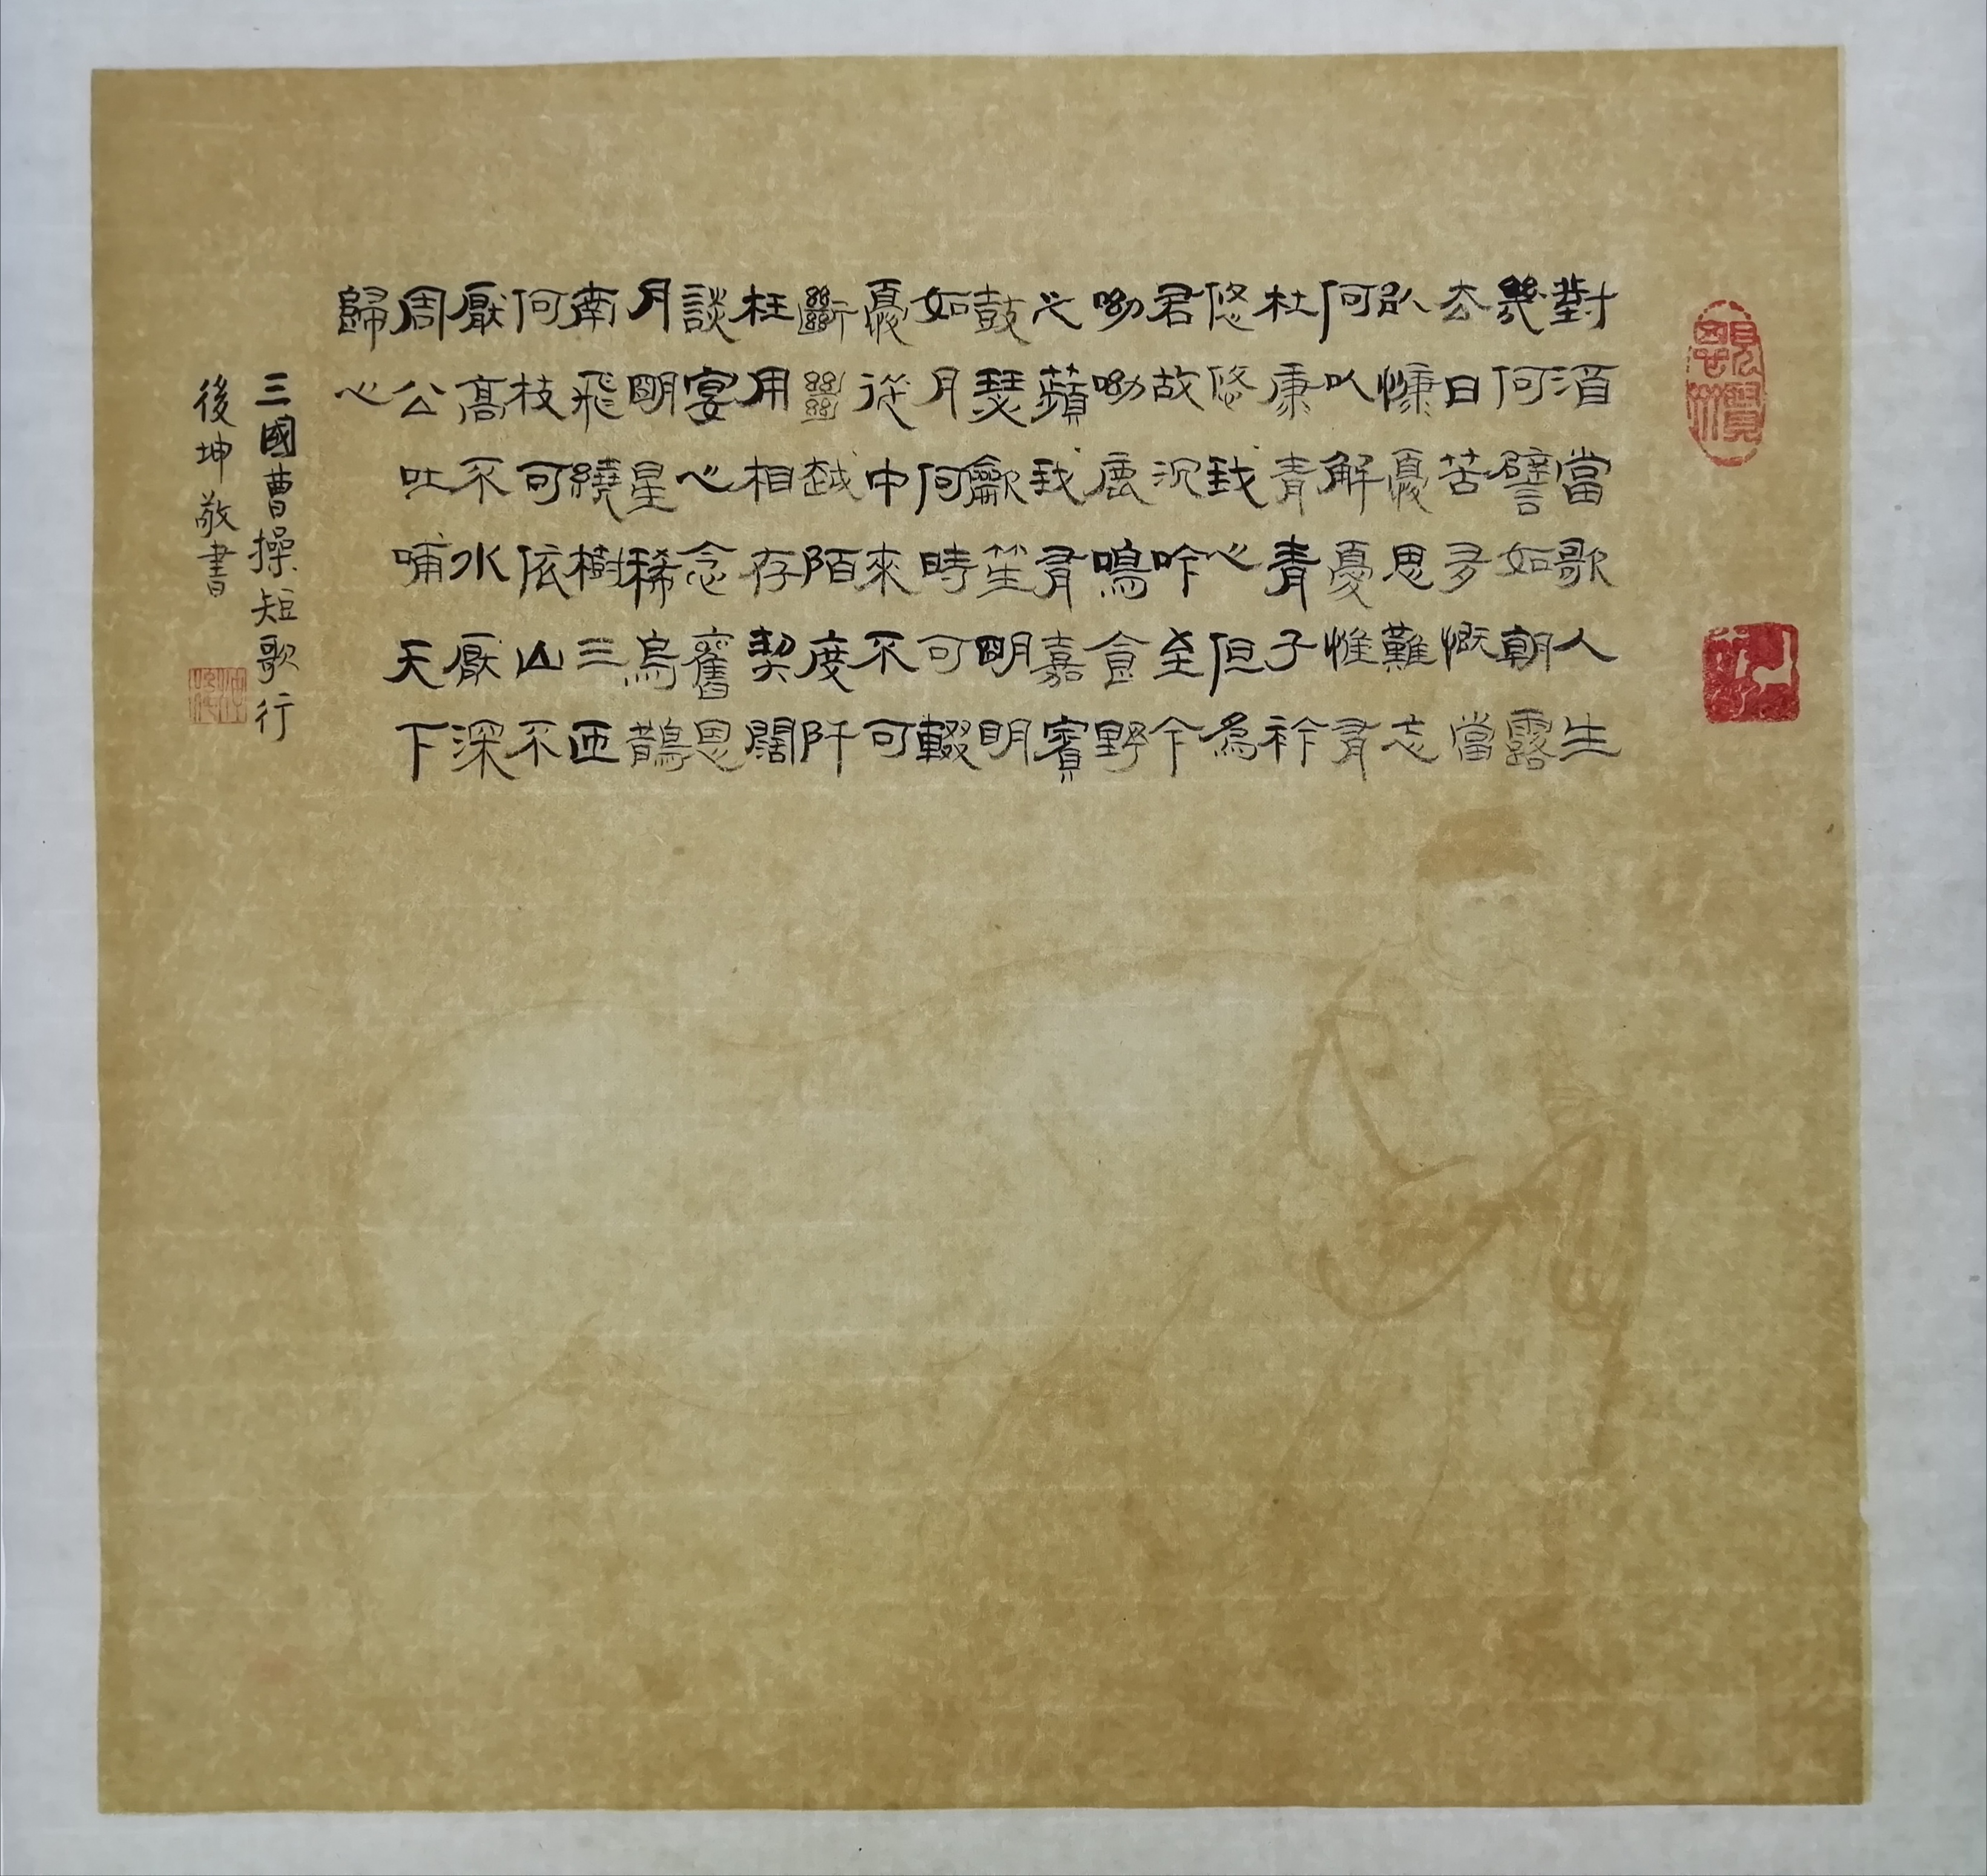 對酒當歌人生
幾何譬如朝露
去日苦多慨當
以慷憂思難忘
何以解憂惟有
杜康青青子衿
悠悠我心但為
君故沉吟至今
呦呦鹿鳴食野
之蘋我有嘉賓
鼓瑟龡笙明明
如月何時可輟
憂從中來不可
斷絕越陌度阡
枉用相存契闊
談宴心念舊恩
月明星稀烏鵲
南飛繞樹三匝
何枝可依山不
厭高不水厭深
周公吐哺天下
歸心
三國曹操短歌行
後坤敬書